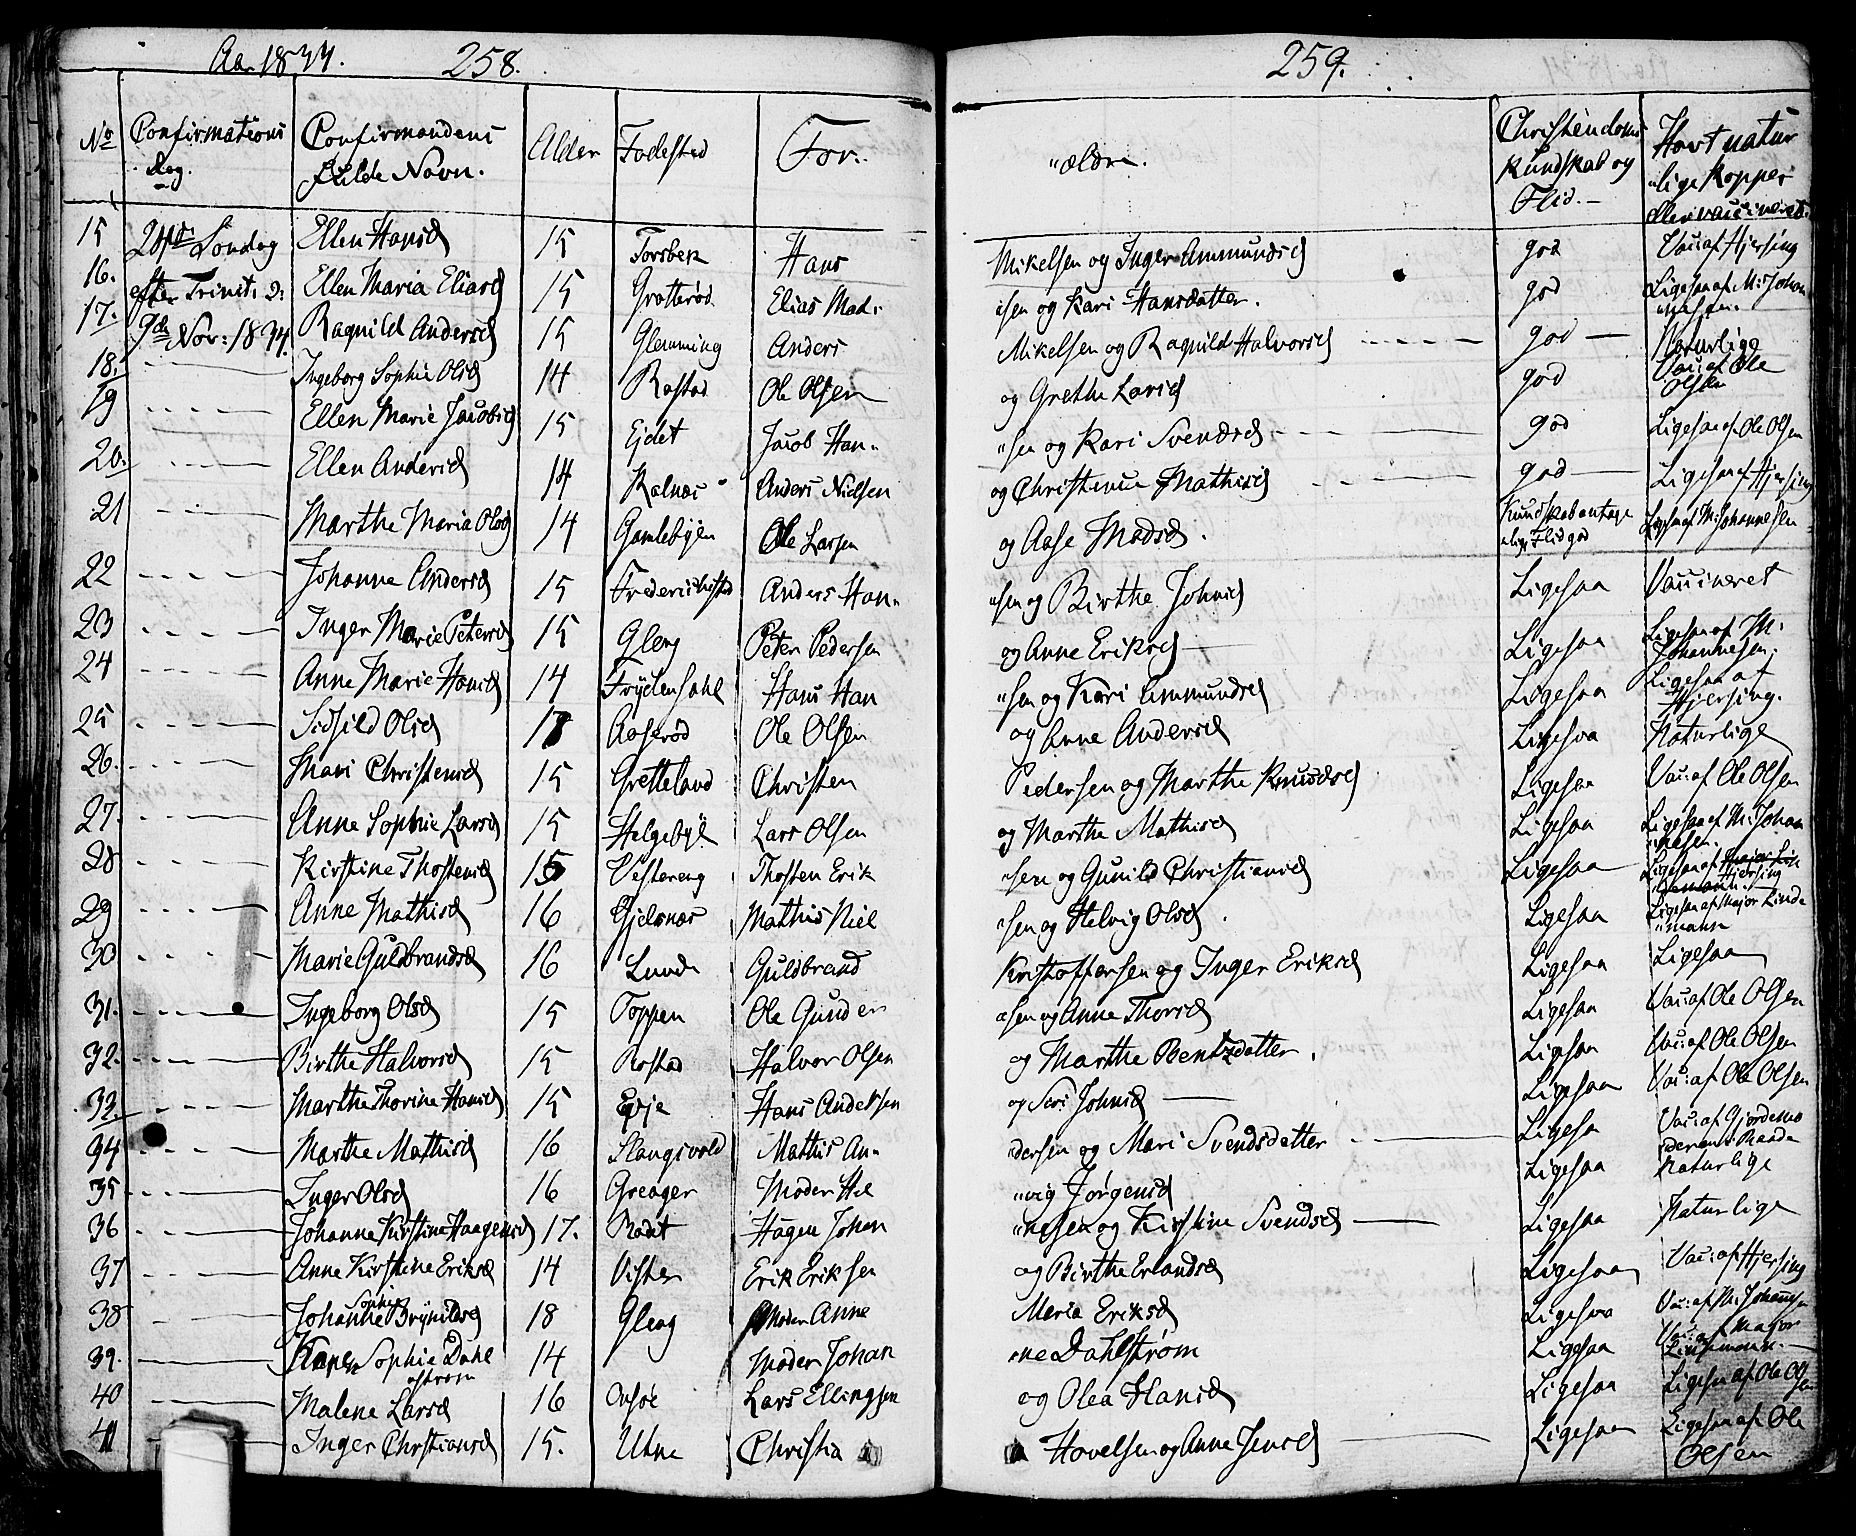 Ao 1834. 258. 259.
No Confirmations Dag. Confirmandens fulde Navn. Alder Fødested For- "ældre. Christendoms Kundskab og Flid. Havt naturlige Kopper eller vaccineret.
15 24de Søndag Ellen Hansd 15 Torsbek Hans Mikelsen og Inger Ammundsd god Vac: af Hjersing
16. efter Trinit: d: Ellen Maria Eliasd 15 Grotterød Elias Mad- "sen og Kari Hansdatter. god Ligesaa af M: Johannesen.
17. 9de Nov: 1834. Ragnild Andersd 15 Glemming Anders Mikelsen og Ragnild Halvorsd god Naturlige
18. Ingeborg Sophie Olsd 14 Rostad Ole Olsen og Grethe Larsd god Vac: af Ole Olsen
19 Ellen Marie Jacobsd 15 Ejdet Jacob Han- "sen og Kari Svendsd god Ligesaa af Ole Olsen
20. Ellen Andersd 14 Kalnæs Anders Nielsen og Christense Mathisd god Ligesaa af Hjersing
21 Marthe Maria Olsd 14 Gamlebyen Ole Larsen og Aase Madsd. Kundskab antagelig Flid god Ligesaa af M: Johannesen
22 Johanne Andersd 15 Frederichsstad Anders Han- "sen og Birthe Johnsd Ligesaa Vaccineret
23 Inger Marie Petersd 15 Gleng Peter Pedersen og Anne Eriksd Ligesaa Ligesaa af M: Johannesen.
24 Anne Marie Hansd 14 Frydensdahl Hans Han "sen og Kari Ammundsd Ligesaa Ligesaa af Hjersing.
25 Sidsild Olsd 17 Aaserød Ole Olsen og Anne Andersd Ligesaa Naturlige
26. Mari Christensd 15 Gretteland Christen Pedersen og Marthe Knudsd Ligesaa Vac: af Ole Olsen
27. Anne Sophie Larsd 15 Helgebye Lars Olsen og Marthe Mathisd Ligesaa Ligesaa af M: Johannesen.
28 Kirstine Thostensd 15 Vestereng Thosten Erik "sen og Gunild Christiansd Ligesaa Ligesaa af Hjersing
29 Anne Mathisd 16 Gjelsnæs Mathis Niel "sen og Helvig Olsd. Ligesaa Ligesaa af Major Lindemann
30 Marie Guldbrandsd 16 Lunde Guldbrand Kristoffersen og Inger Eriksd Ligesaa Ligesaa
31. Ingeborg Olsd 15 Toppen Ole Gunder "sen og Anne Thorsd Ligesaa Vac: af Ole Olsen
32. Birthe Halvorsd 15 Rostad Halvor Olsen og Marthe Bentzdatter. Ligesaa Vac: af Ole Olsen
33 Marthe Thorine Hansd 15 Evje Hans Andersen og Siri Johnsd Ligesaa Vac: af Ole Olsen
34 Marthe Mathisd 16 Slangsvold Mathis An- "dersen og Mari Svendsdatter Ligesaa Vac: af Gjordemoderen i Raade
35 Inger Olsd 16 Greager Moder Hel "vig Jørgensd Ligesaa Naturlige
36 Johanne Kirstine Haagensd 17. Rødt Hagen Johan "nesen og Kirstine Svendsd Ligesaa Naturlige
37 Anne Kirstine Eriksd 14 Vister Erik Eriksen og Birthe Erlandsd Ligesaa Vac: af Hjersing
38 Johanne Sophie Brynildsd 18 Gleng Moder Anne Maria Eriksd Ligesaa Vac: af M: Johannesen
39. Karen Sophie Dahlstrøm 14 Moder Johan "ne Dahlstrøm Ligesaa Vac: af Major Lindemann.
40 Malene Larsd 16 Onsøe Lars Ellingsen og Olea Hansd Ligesaa Ligesaa af Ole Olsen
41 Inger Christiansd 15. Utne Christian Hovelsen og Anne Jensd Ligesaa Ligesaa af Ole Olsen